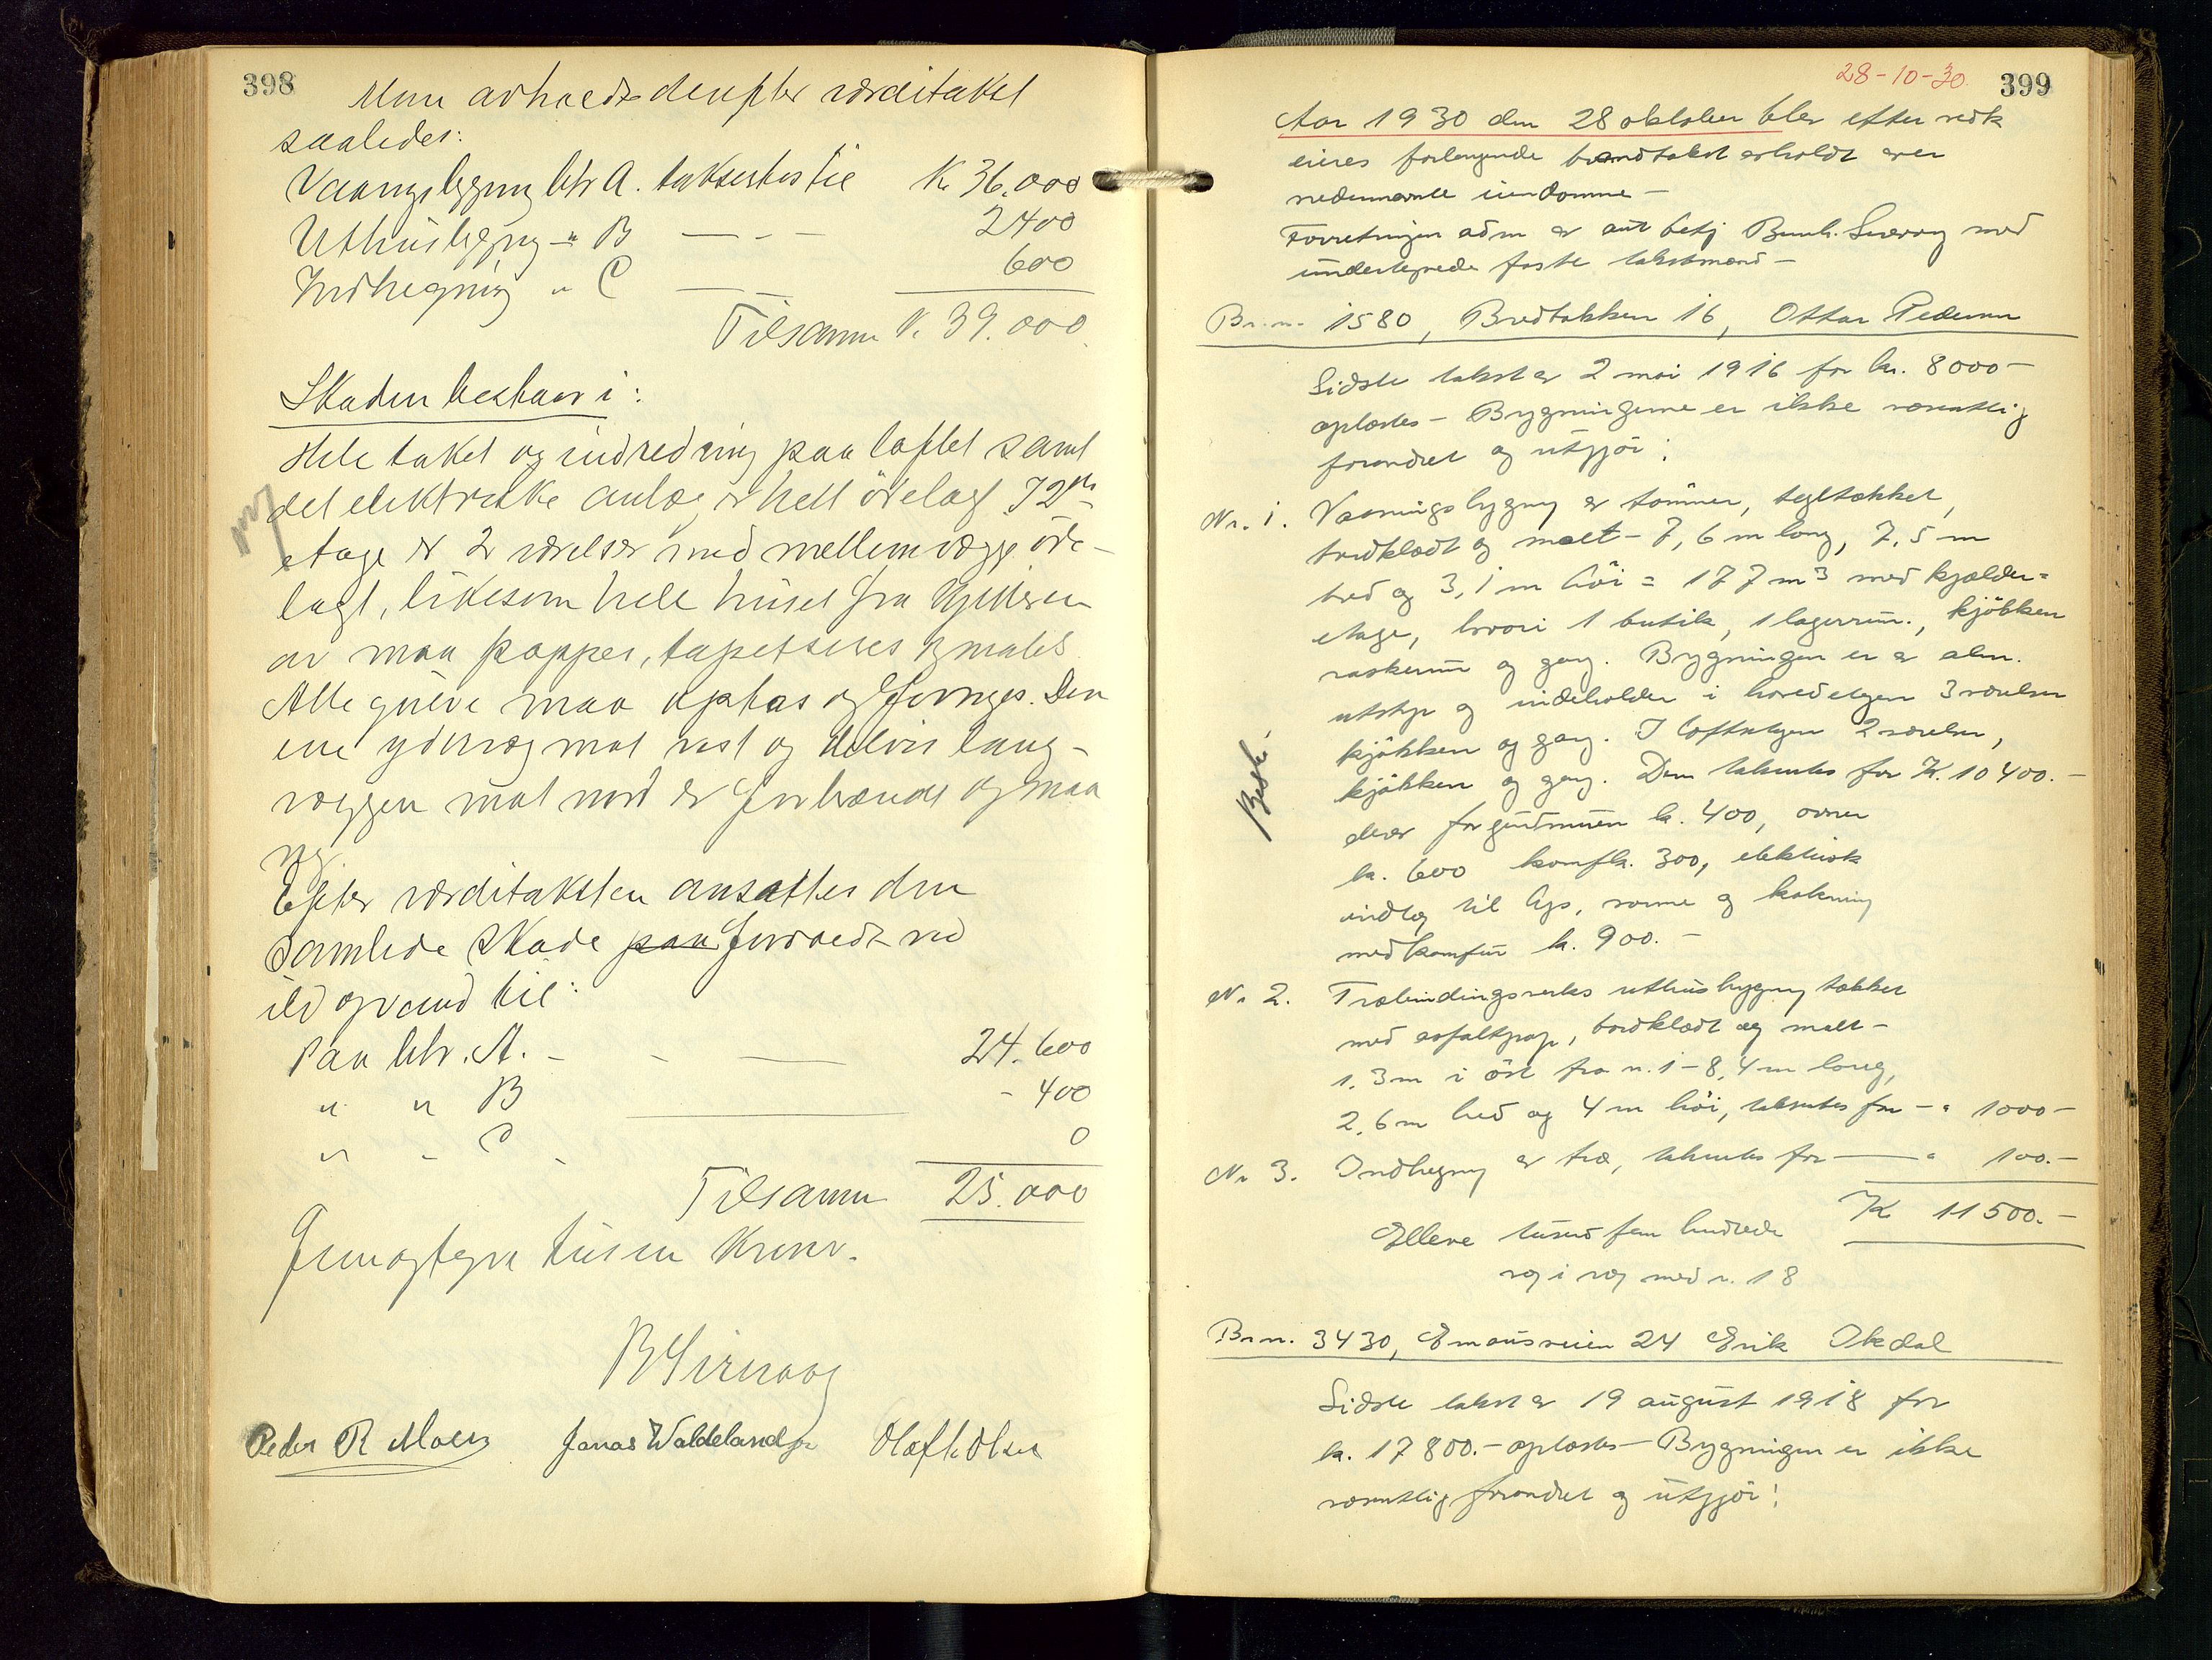 398
Man avholdt derefter værditakst
saaledes:
Vaaningsbygning litr A. taksertes til K. 36.000
Uthusbygng — " B — - — 2400
Indhegning " C — — 600
Tilsammen K. 39.000.
Skaden bestaar i:
Hele taket og indredning paa loftet samt
det elektriske anlæg er helt ödelagt I 2den
etage er 2 værelser med mellemvægge öde-
lagt, likesom hele huset fra kjelderen
av maa pappes, tapetseres og males
Alle gulve maa optas og fornyes. Den
ene ydervæg mot vest og delvis lang-
væggen mot nord er forbrændt og maa
ny.
Efter værditaksten ansattes den
samlede skade paa forvoldt ved
ild og vand til:
Paa litr. A. - - — 24.600
" " B — - 400
" - C - 0
Tilsammen 25.000
Femogtyve tusen Kroner.
B Sirevaag
Peder R Moen Jonas Waldeland jr Olaf K. Olsen
28-10-30. 399
Aar 1930 den 28 oktober blev efter vedk
eieres forlangende brandtakst avholdt over
nedennævnte eiendomme —
Forretningen adm. av aut betj Bernh. Sirevaag med
undertegnede faste takstmænd —
Br.nr. 1580, Bredbakken 16, Ottar Pedersen
Sidste takst av 2 mai 1916 for kr. 8000 —
oplæstes — Bygningerne er ikke væsentlig
forandret og utgjör:
Nr. 1. Vaaningsbygning av tömmer, tegltækket,
bordklædt og malt — 7,6 m lang, 7,5 m
bred og 3,1 m höi = 177 m3 med kjælder=
etage, hvori 1 butik, 1 lagerrum., kjökken
vaskerum og gang. Bygningen er av alm.
utstyr og indeholder i hovedetagen 3 værelser
kjökken og gang. I loftsetagen 2 værelser,
kjökken og gang. Den takseres for K. 10400.—
derav for grundmuren kr. 400, ovner
kr. 600 komf kr. 300, elektrisk
indlæg til lys, varme og kokning
med komfur kr. 900.—
Nr 2. Træbindingsverks uthusbygning tækket
med asfaltpap, bordklædt og malt —
1,3 m i öst fra nr. 1 — 8,4 m lang,
2,6 m bred og 4 m höi, takseres for — " 1000 —
Nr 3. Indhegning av træ, takseres for — " 100.—
K 11500.—
Elleve tusend fem hundrede
væg i væg med nr. 18
Br.nr. 3430, Emausveien 24 Erik Okdal
Sidste takst av 19 august 1918 for
kr. 17800.— oplæstes — Bygningen er ikke
væsentlig forandret og utgjör: